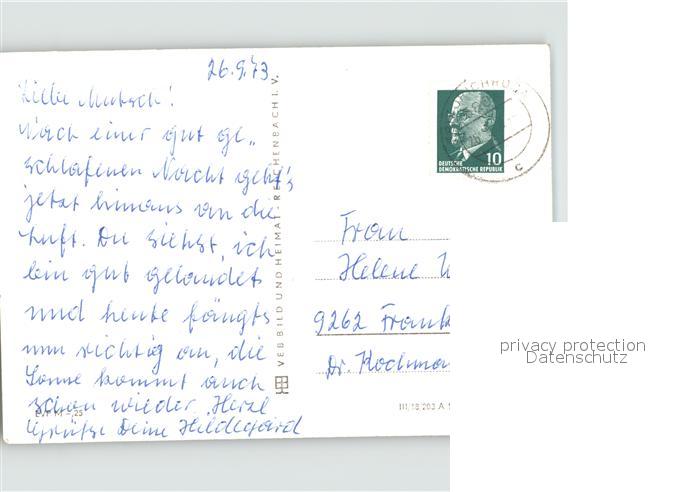 26.9.73
Liebe Mutsch!
Nach einer gut ge„
schlafenen Nacht geht's
jetzt hinaus an die
Luft. Du siehst, ich
bin gut gelandet
und heute fängts
nun richtig an, die
Sonne kommt auch
schon wieder. Herzl
Grüße Deine Hildegard
VEB BILD UND HEIMAT · REICHENBACH I. V.
10
DEUTSCHE
DEMOKRATISCHE REPUBLIK
c
Frau
Helene
9262 Frank
Dr. Kochman
III/18/203 A
privacy protection
Datenschutz